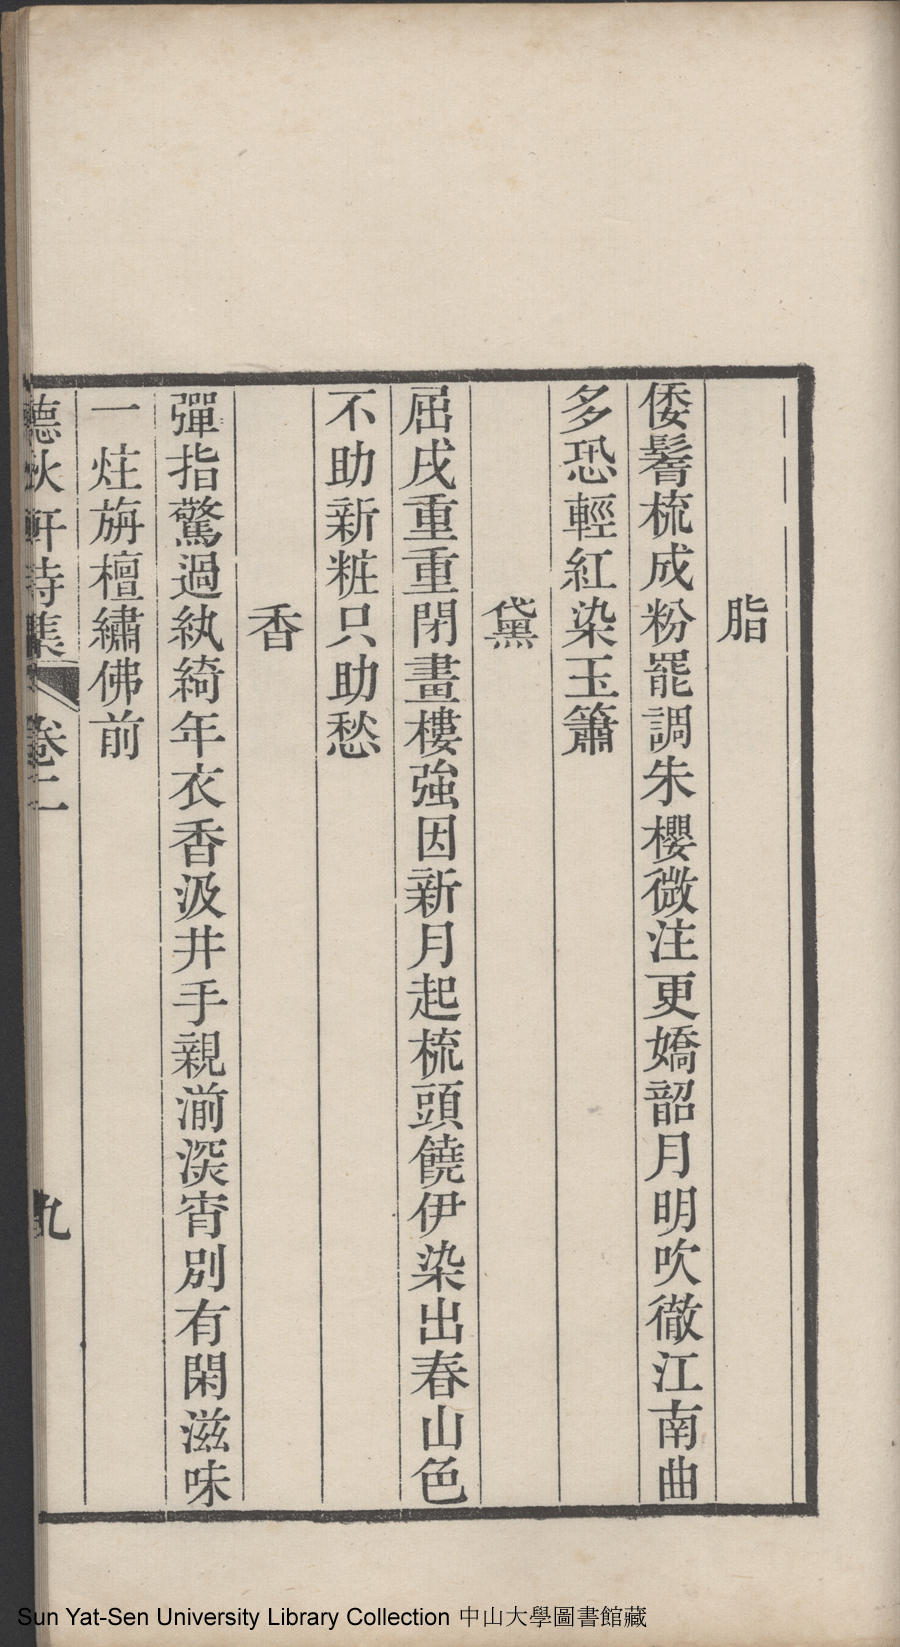 脂
倭鬌梳成粉罷調朱櫻微注更嬌韶月明吹徹江南曲
多恐輕紅染玉簫
黛
屈戌重重閉畫樓強因新月起梳頭饒伊染出春山色
不助新粧只助愁
香
彈指驚過紈綺年衣香汲井手親湔深宵別有閑滋味
一炷旃檀繡佛前
聽秋軒詩集 卷二
九
Sun Yat-Sen University Library Collection 中山大學圖書館藏